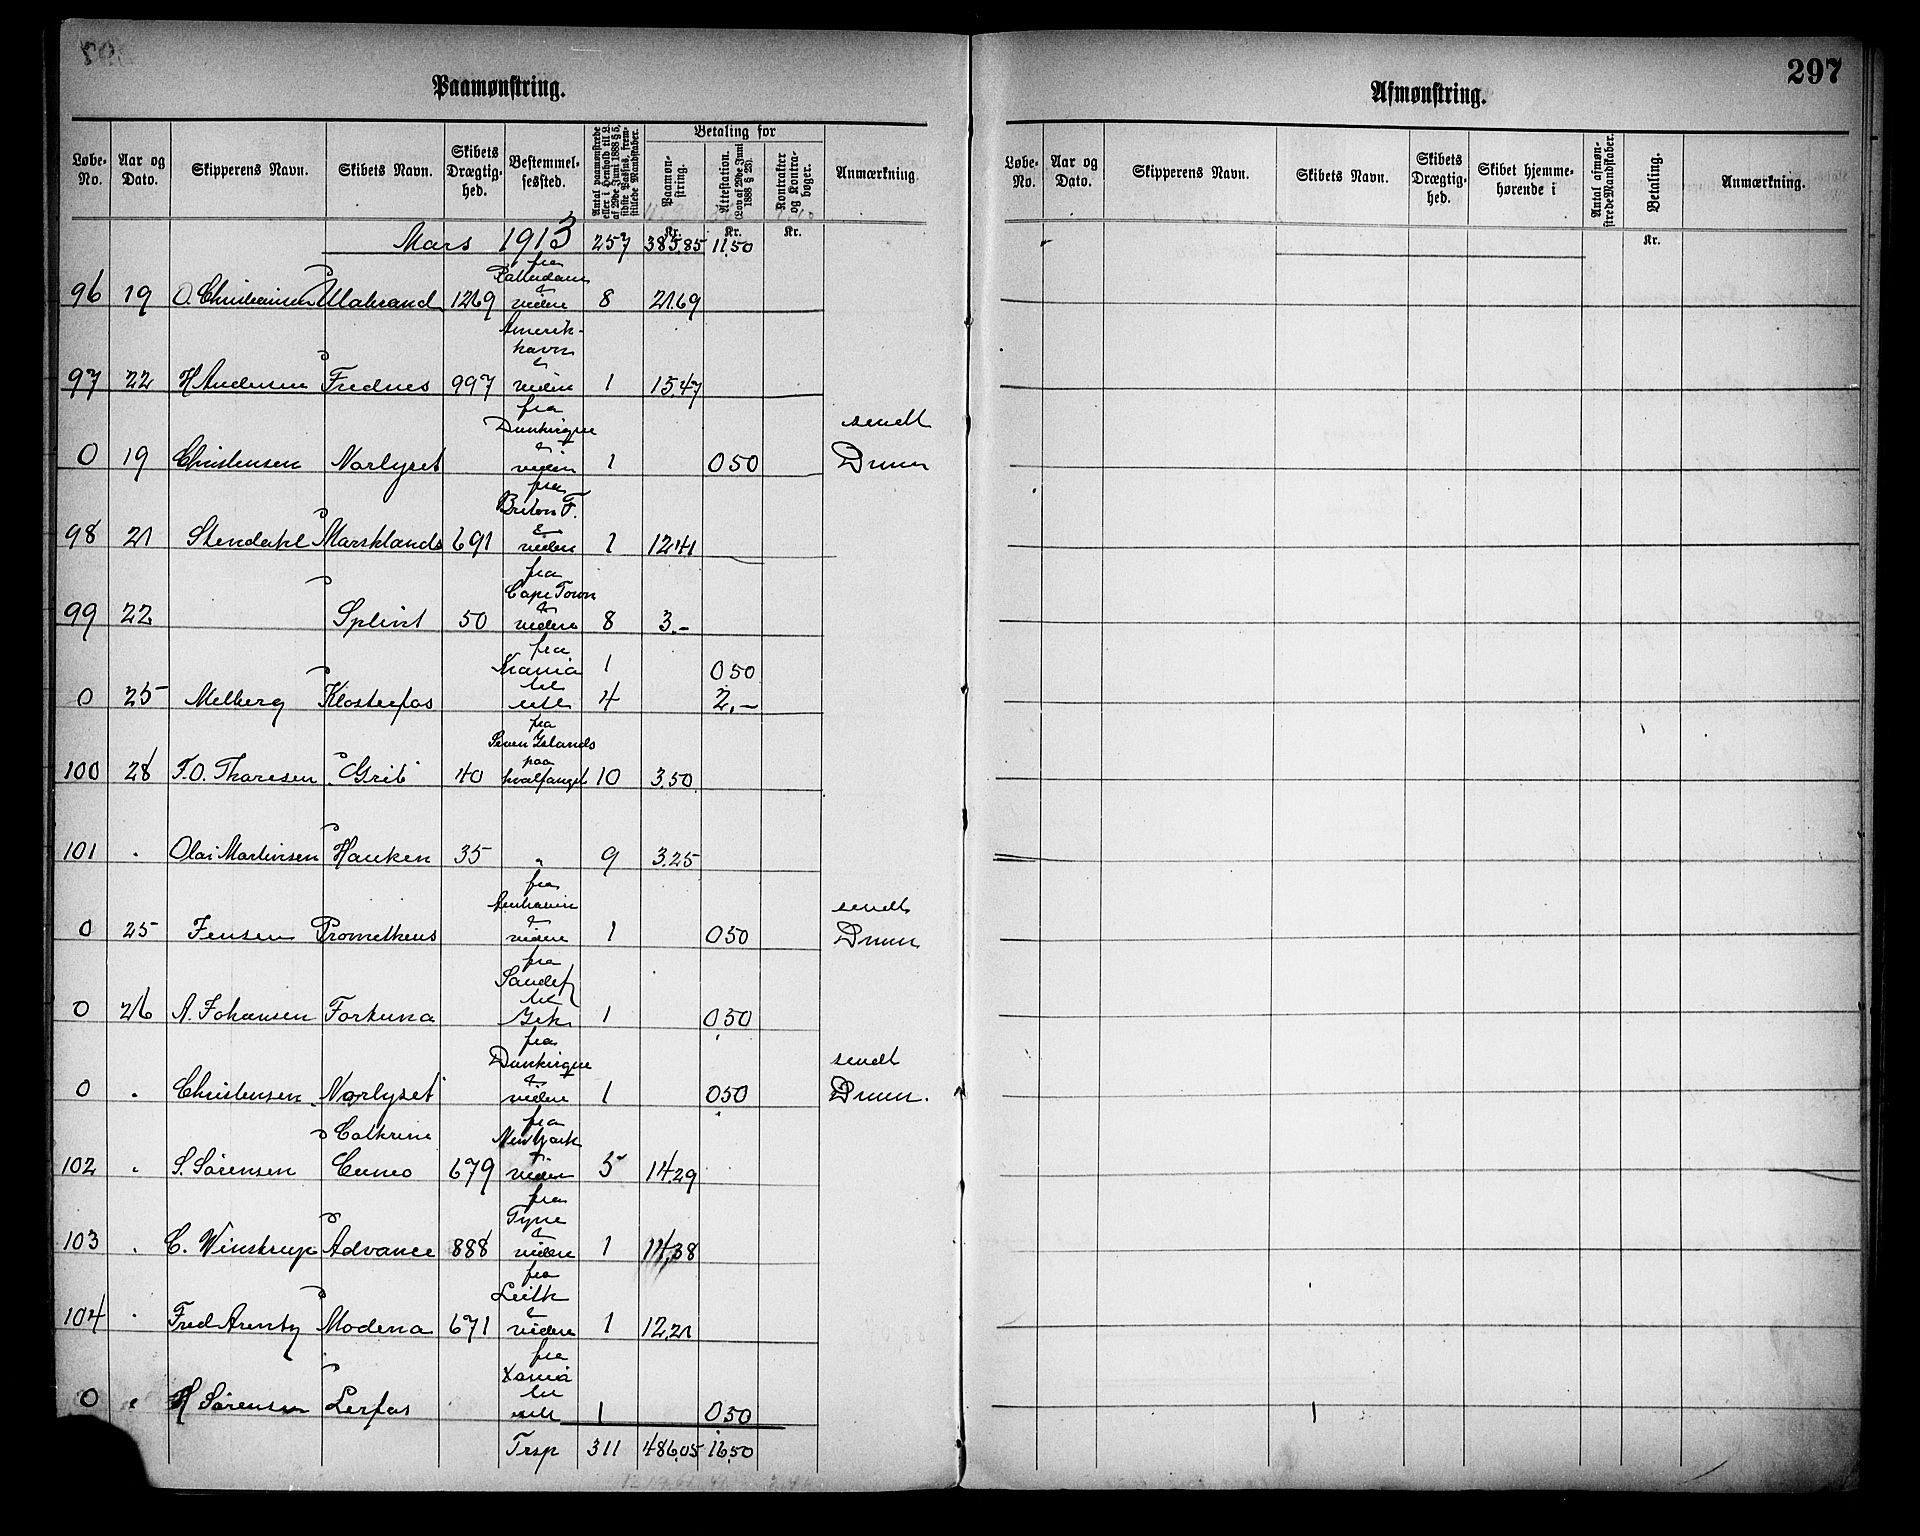 297
Paamønstring.
Afmønstring.
Løbe-No. Aar og Dato. Skipperens Navn. Skibets Navn. Skibets Drægtighed. Bestemmelsessted. Antal paamønstrede eller i Henhold til L. af 29de Juni 1888 § 5, sidste Passus, fremstillede Mandskaber. Betaling for Paamønstring. Attestation. (Lov af 29de Juni 1888 § 23). Kontrakter og Kontrabøger. Anmærkning.
Løbe-No. Aar og Dato. Skipperens Navn. Skibets Navn. Skibets Drægtighed. Skibet hjemmehørende i Antal afmønstrede Mandskaber. Betaling. Anmærkning.
Kr. Kr. Kr. Kr.
Mars 1913 257 385.85 11.50
fra
96 19 O. Christiansen 1269 videre 8 21.69
havn
97 22 H Andersen Frednes 997 videre 1 15.47
fra
Dunkirque sendt
0 19 Christensen Norlyset videre 1 050
fra
Briton F.
&
98 21 Stendahl Marsklands 691 videre 1 12.41
fra
Cape Town
99 22 Splint 50 videre 8 3.-
fra
Krania 1 050
til
0 25 Melberg Klosterfos 4 2,-
fra
Seven Islands
paa
100 28 F.O. Thoresen Grib 40 hvalfanget 10 3.50
101 " Olai Martinsen Hauken 35 " 9 3.25
fra
sendt
0 25 Jensen Prometheus videre 1 050
fra
Sandefj
til
0 26 A. Johansen Fortuna 1 050
fra
Dunkirque sendt
0 " Christensen Norlyset videre 1 050
fra
Cathrine New York
102 " S. Sørensen Cuneo 679 videre 5 14.29
fra
Tyne
103 " C. Winstrup Advance 888 videre 1 14,38
fra
Leith
104 " Modena 671 videre 1 12.21
fra
Xania
til
0 " H Sørensen Lerfos 1 050
Trsp 311 486.05 16.50